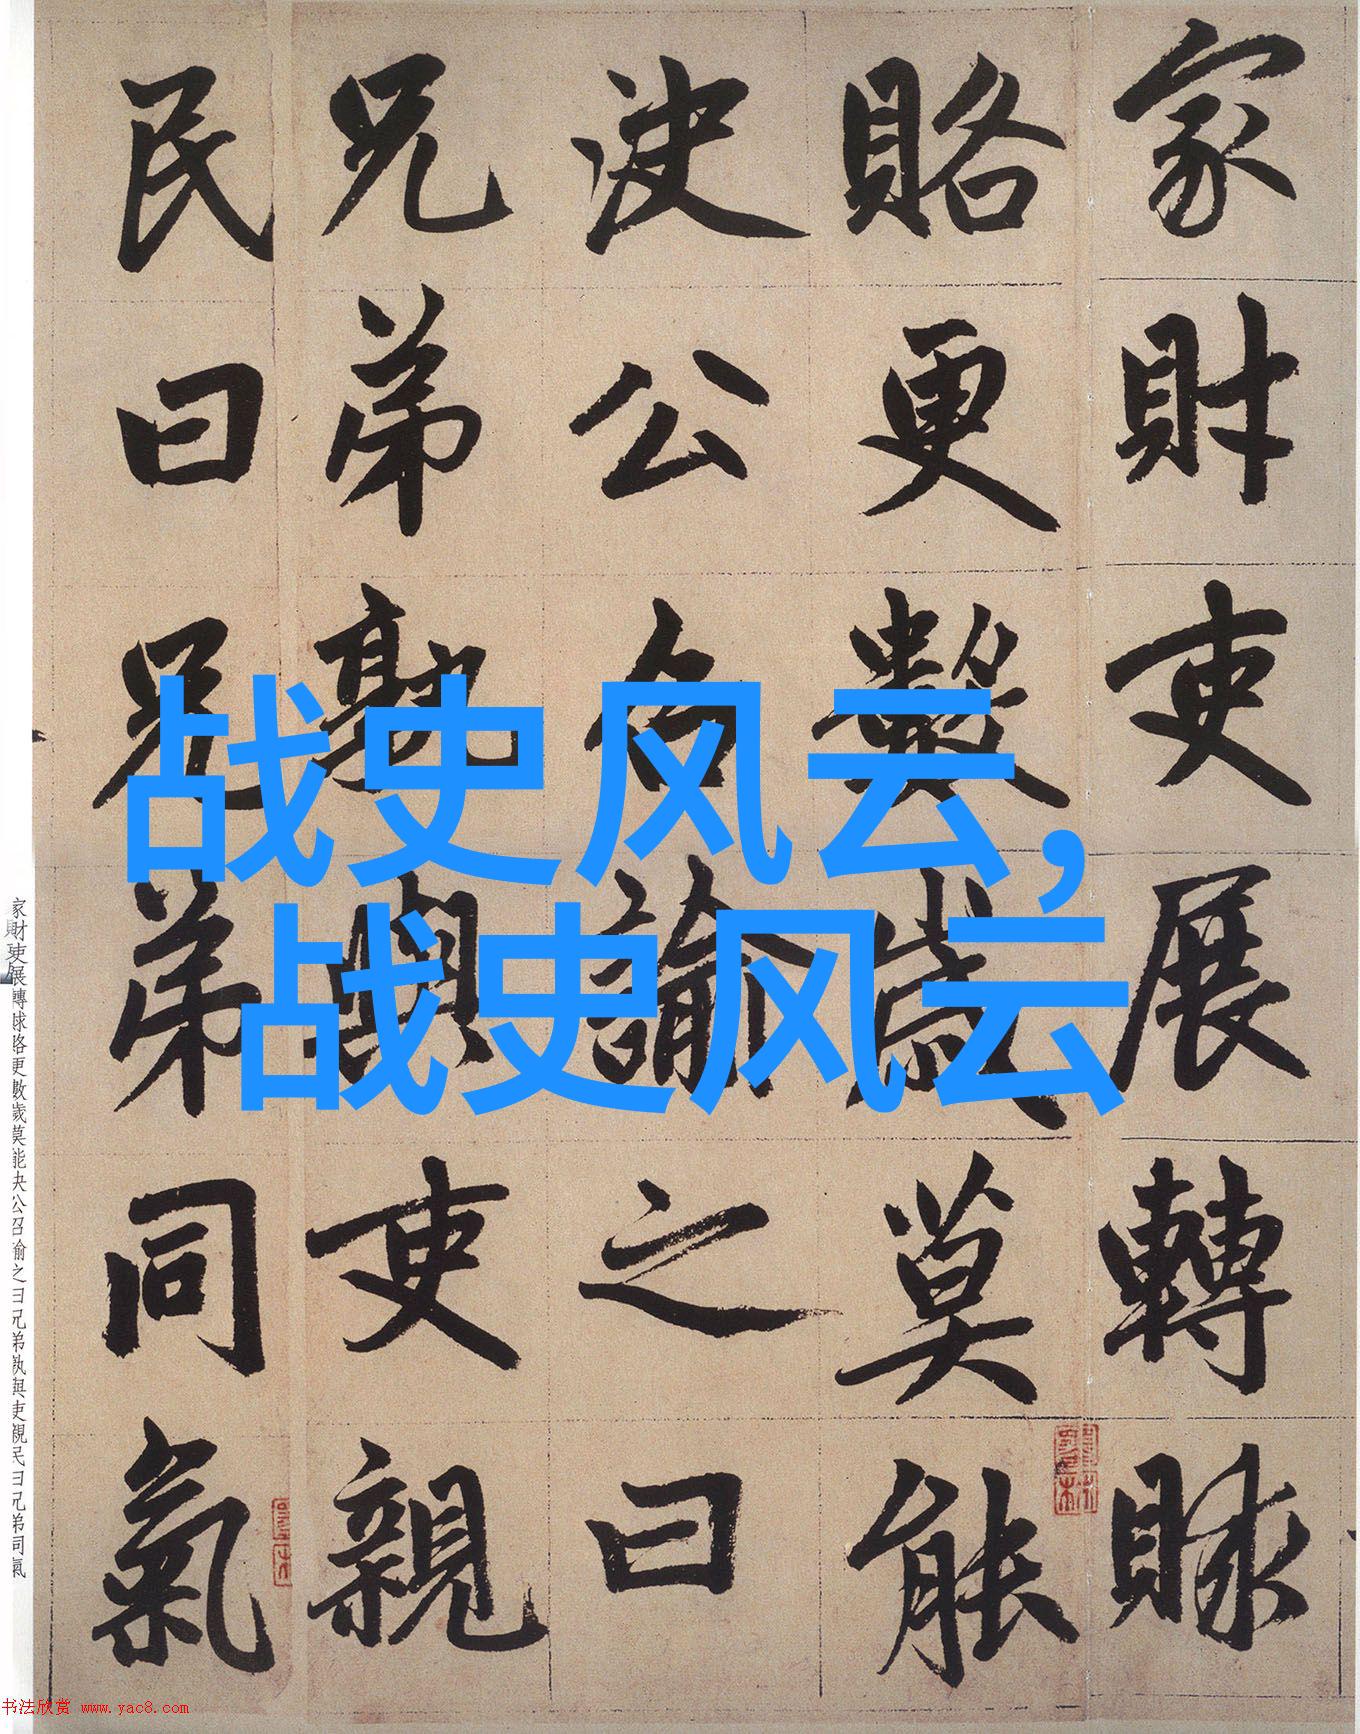 家財吏展轉賕
賂更數歲莫能
決公召諭之曰
兄弟孰與吏親
民曰兄弟同氣
战史风云,
战史风云
家財吏展轉賕賂更數歲莫能決公召諭之曰兄弟孰與吏親民曰兄弟同氣
书法欣赏 www.yac8.com